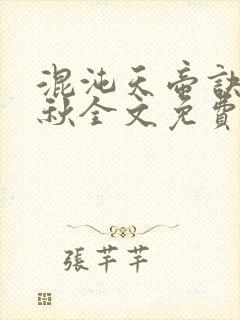 混沌天帝訣
秋全文免費
張芊芊